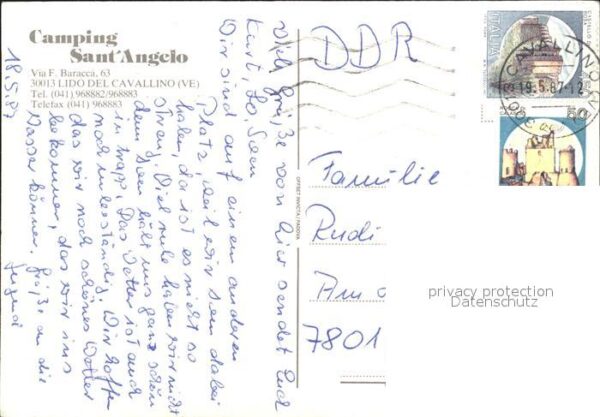 Camping
Sant'Angelo
Via F. Baracca, 63
30013 LIDO DEL CAVALLINO (VE)
Tel. (041) 968882/968883
Telefax (041) 968883
18.5.87
Viele Grüße von hier sendet Euch
Kurt,
Wir sind auf einem anderen
Platz, weil wir den dabei
haben, da ist es nicht so
Viel ruhe haben wir nicht
dem hält uns ganz schön
in trapp. Das Wetter ist auch
noch unbeständig. Wir hoffen
das wir noch schönes Wetter
bekommen, das wir ins
Wasser können. Grüße an die
Jugend
DDR
Familie
Rudi
Am
7801
OFFSET INVICTA/PADOVA
ITALIA
CAVALLINO
19.5.87-12
300
50
privacy protection
Datenschutz